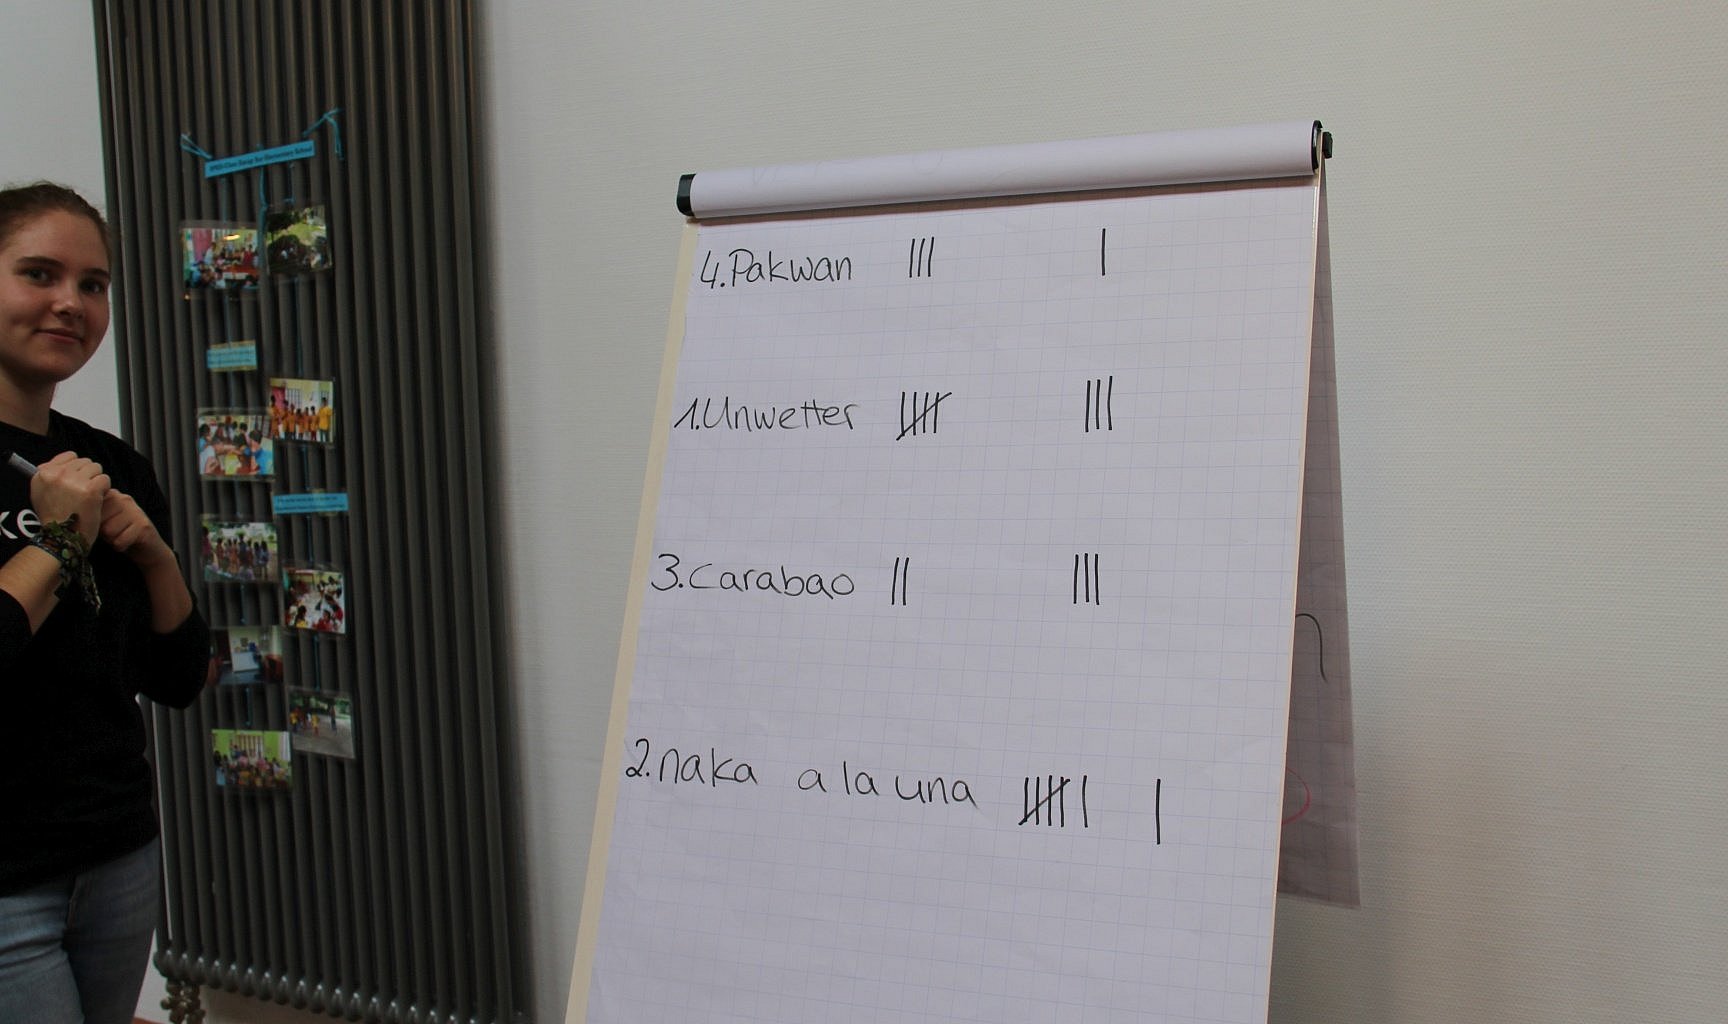 4. Pakwan ||| |
1. Unwetter 卌 |||
3. Carabao || |||
2. naka a la una 卌 | |
ke